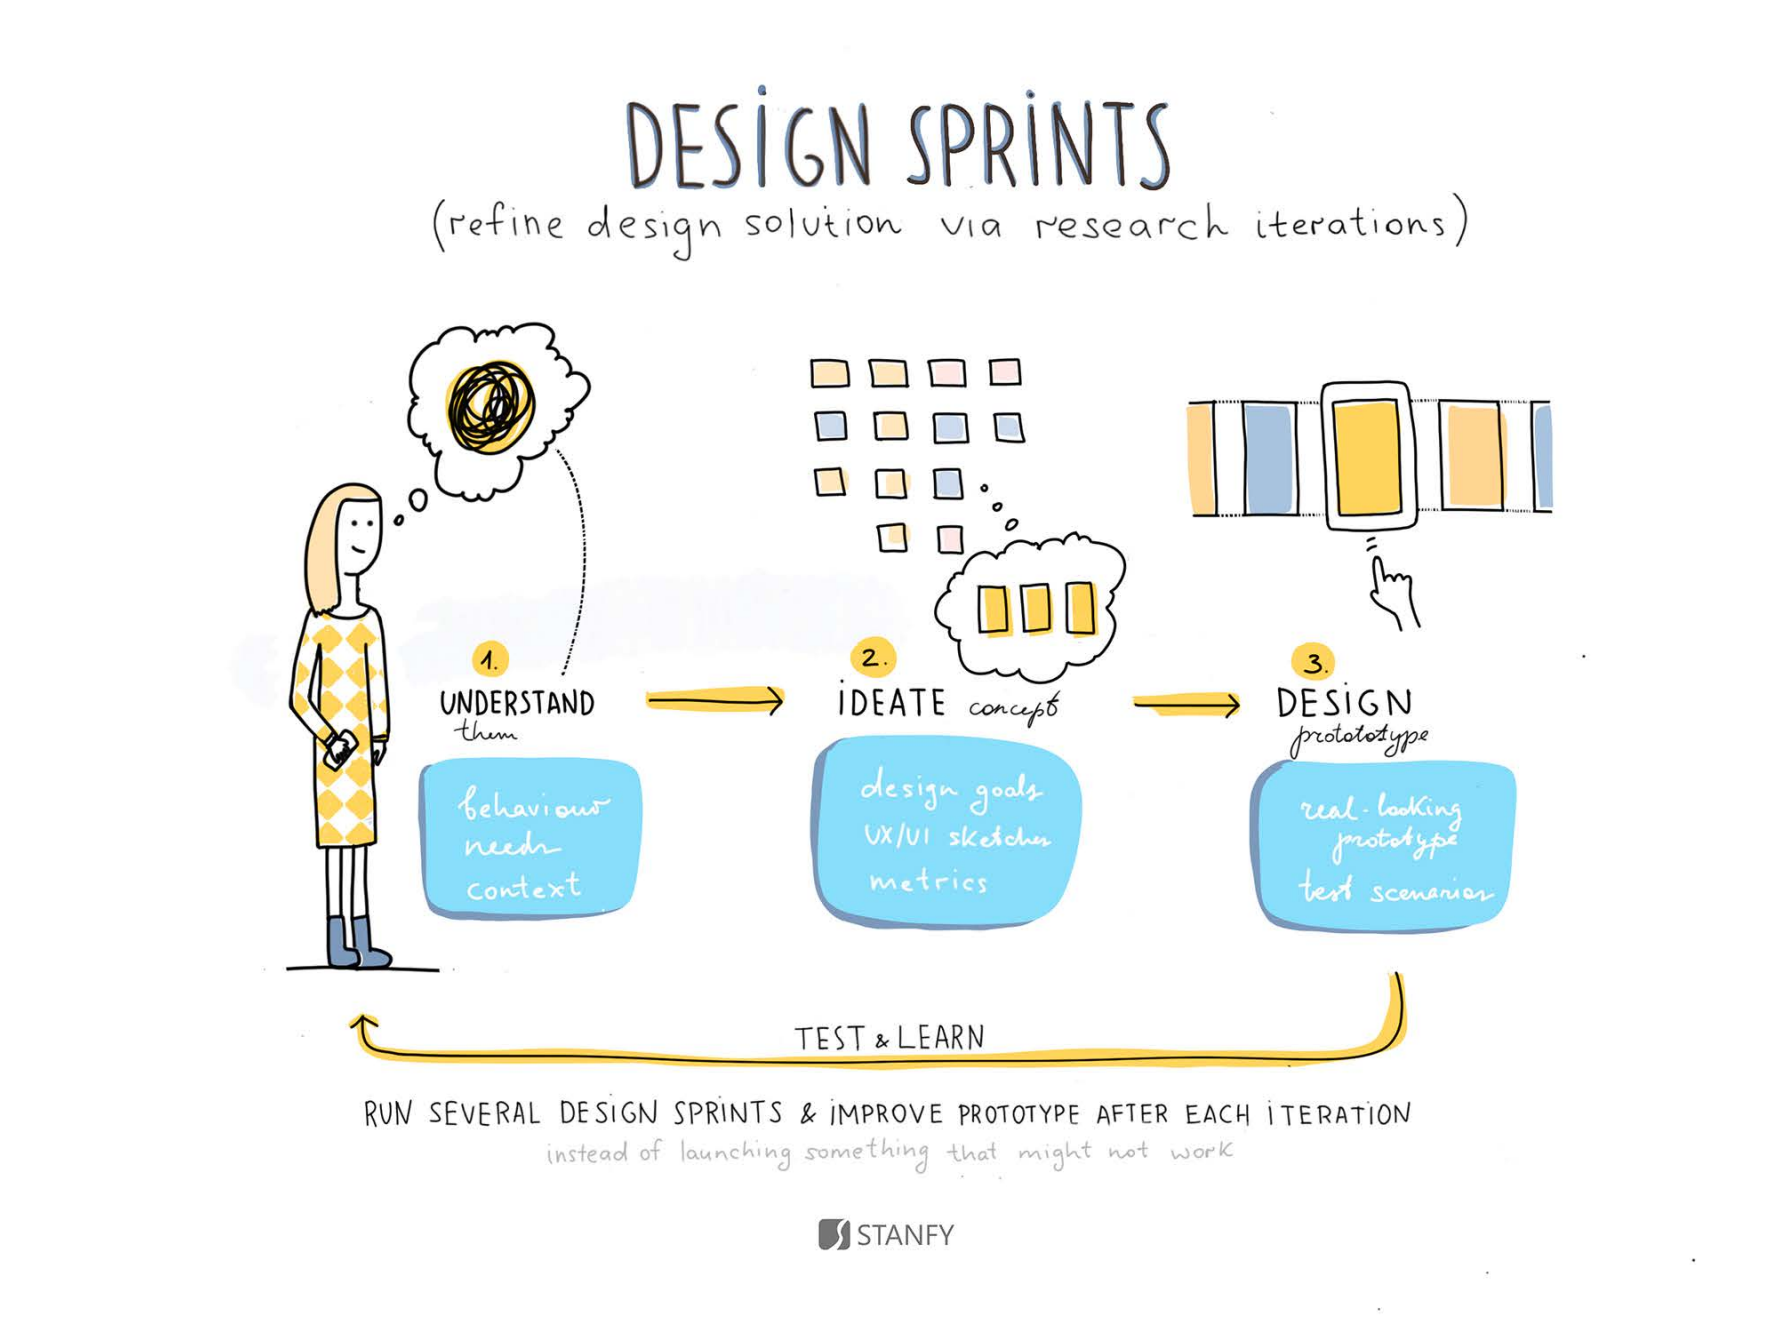 DESIGN SPRINTS
(refine design solution via research iterations)
1.
UNDERSTAND
them
behaviour
needs
context
2.
IDEATE concept
design goals
UX/UI sketches
metrics
3.
DESIGN
protototype
real-looking
prototype
test scenarios
TEST & LEARN
RUN SEVERAL DESIGN SPRINTS & IMPROVE PROTOTYPE AFTER EACH ITERATION
instead of launching something that might not work
STANFY